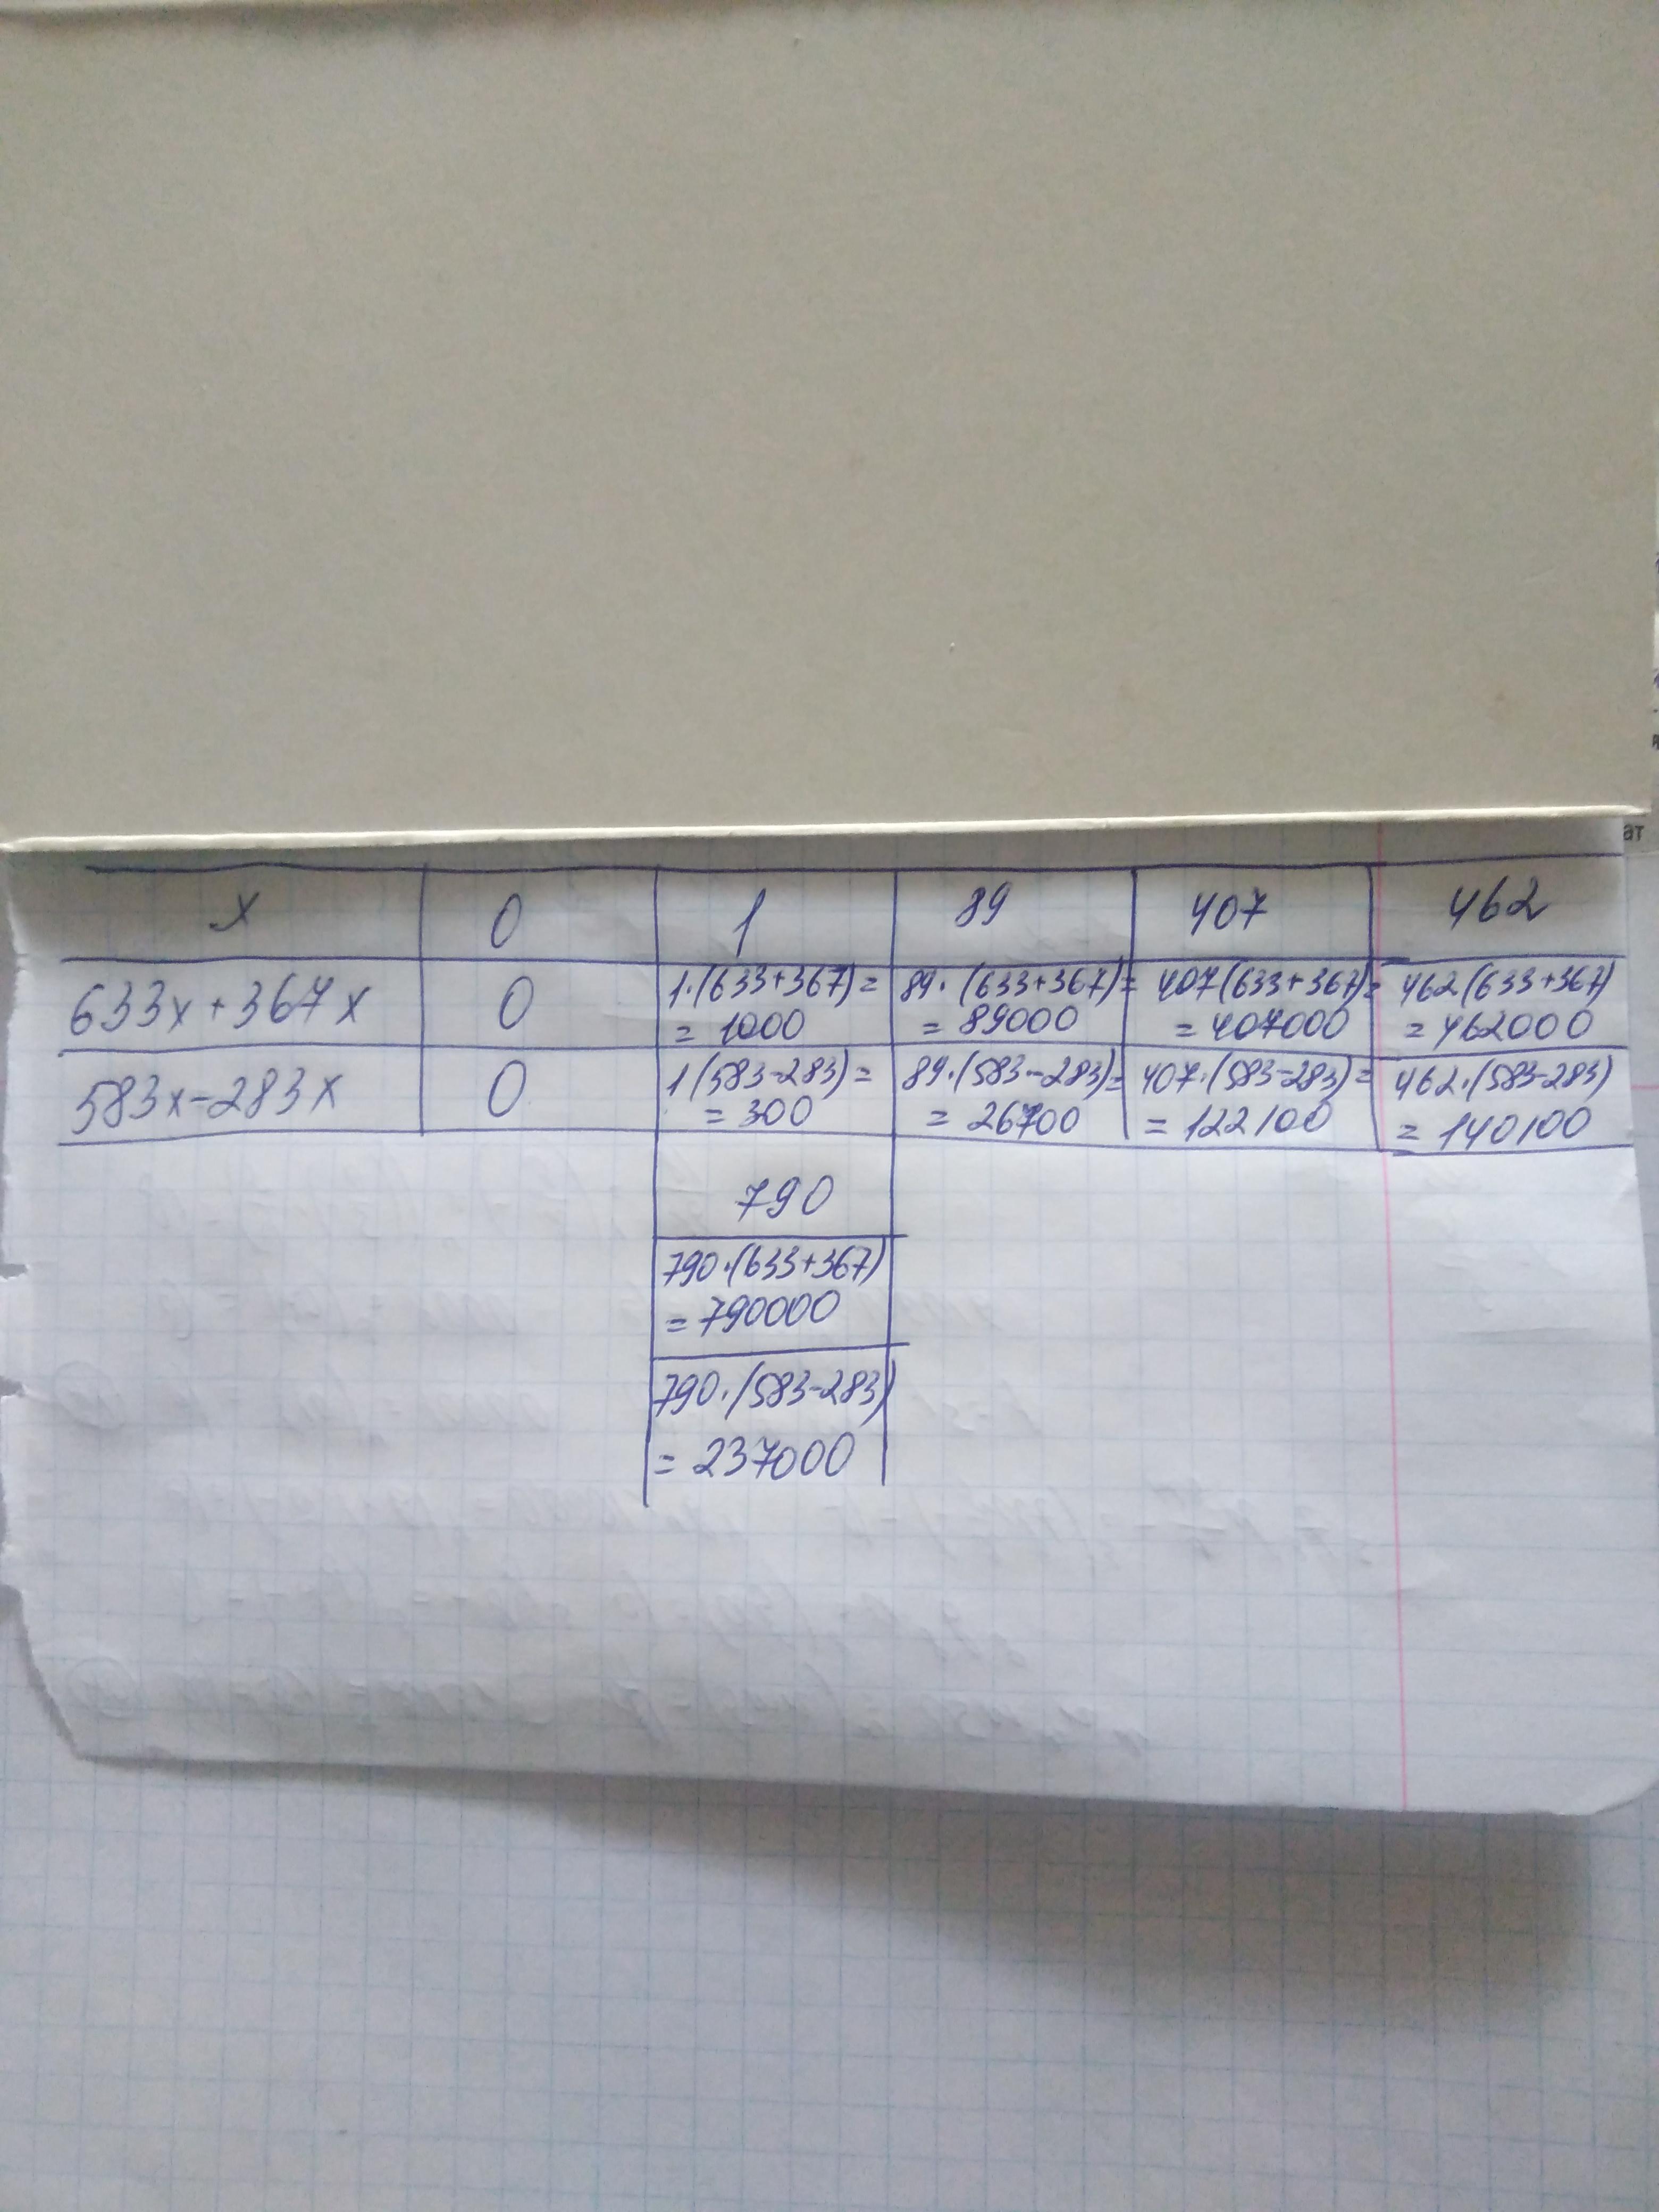 x 0 1 89 407 462
633x+367x 0 1·(633+367)= 89·(633+367)= 407(633+367)= 462(633+367)
= 1000 = 89000 = 407000 = 462000
583x-283x 0 1(583-283)= 89·(583-283)= 407·(583-283)= 462·(583-283)
= 300 = 26700 = 122100 = 140100
790
790·(633+367)
= 790000
790·(583-283)
= 237000
ат